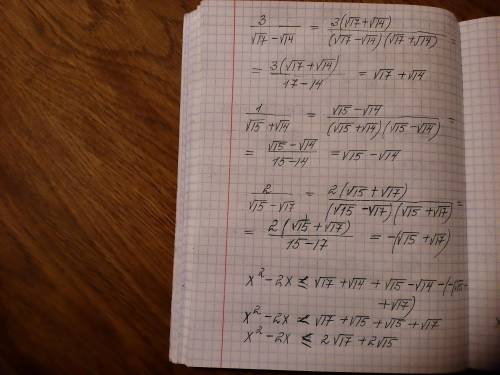 3/(√17 − √14) = 3(√17 + √14)/((√17 − √14)(√17 + √14)) =
= 3(√17 + √14)/(17 − 14) = √17 + √14
1/(√15 + √14) = (√15 − √14)/((√15 + √14)(√15 − √14)) =
= (√15 − √14)/(15 − 14) = √15 − √14
2/(√15 − √17) = 2(√15 + √17)/((√15 − √17)(√15 + √17)) =
= 2(√15 + √17)/(15 − 17) = −(√15 + √17)
x² − 2x ≤ √17 + √14 + √15 − √14 − (−(√15 +
+ √17)
x² − 2x ≤ √17 + √15 + √15 + √17
x² − 2x ≤ 2√17 + 2√15